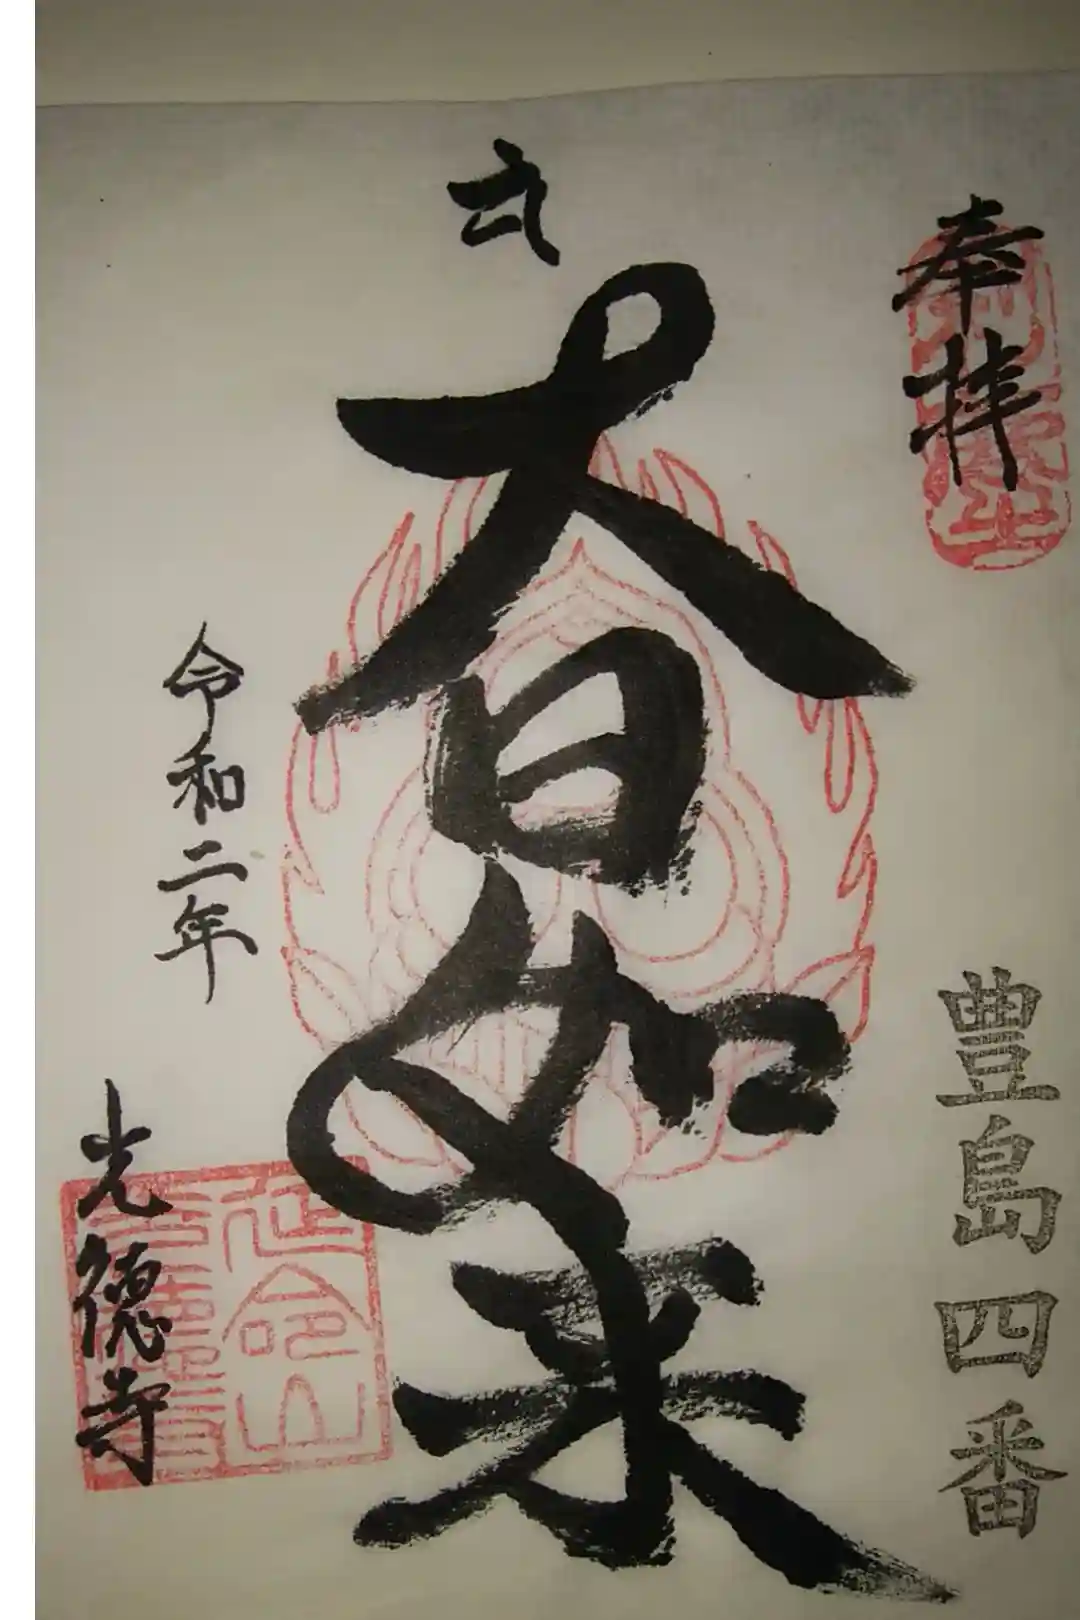 奉拝
豊島四番
大日如来
令和二年
光徳寺
延命山